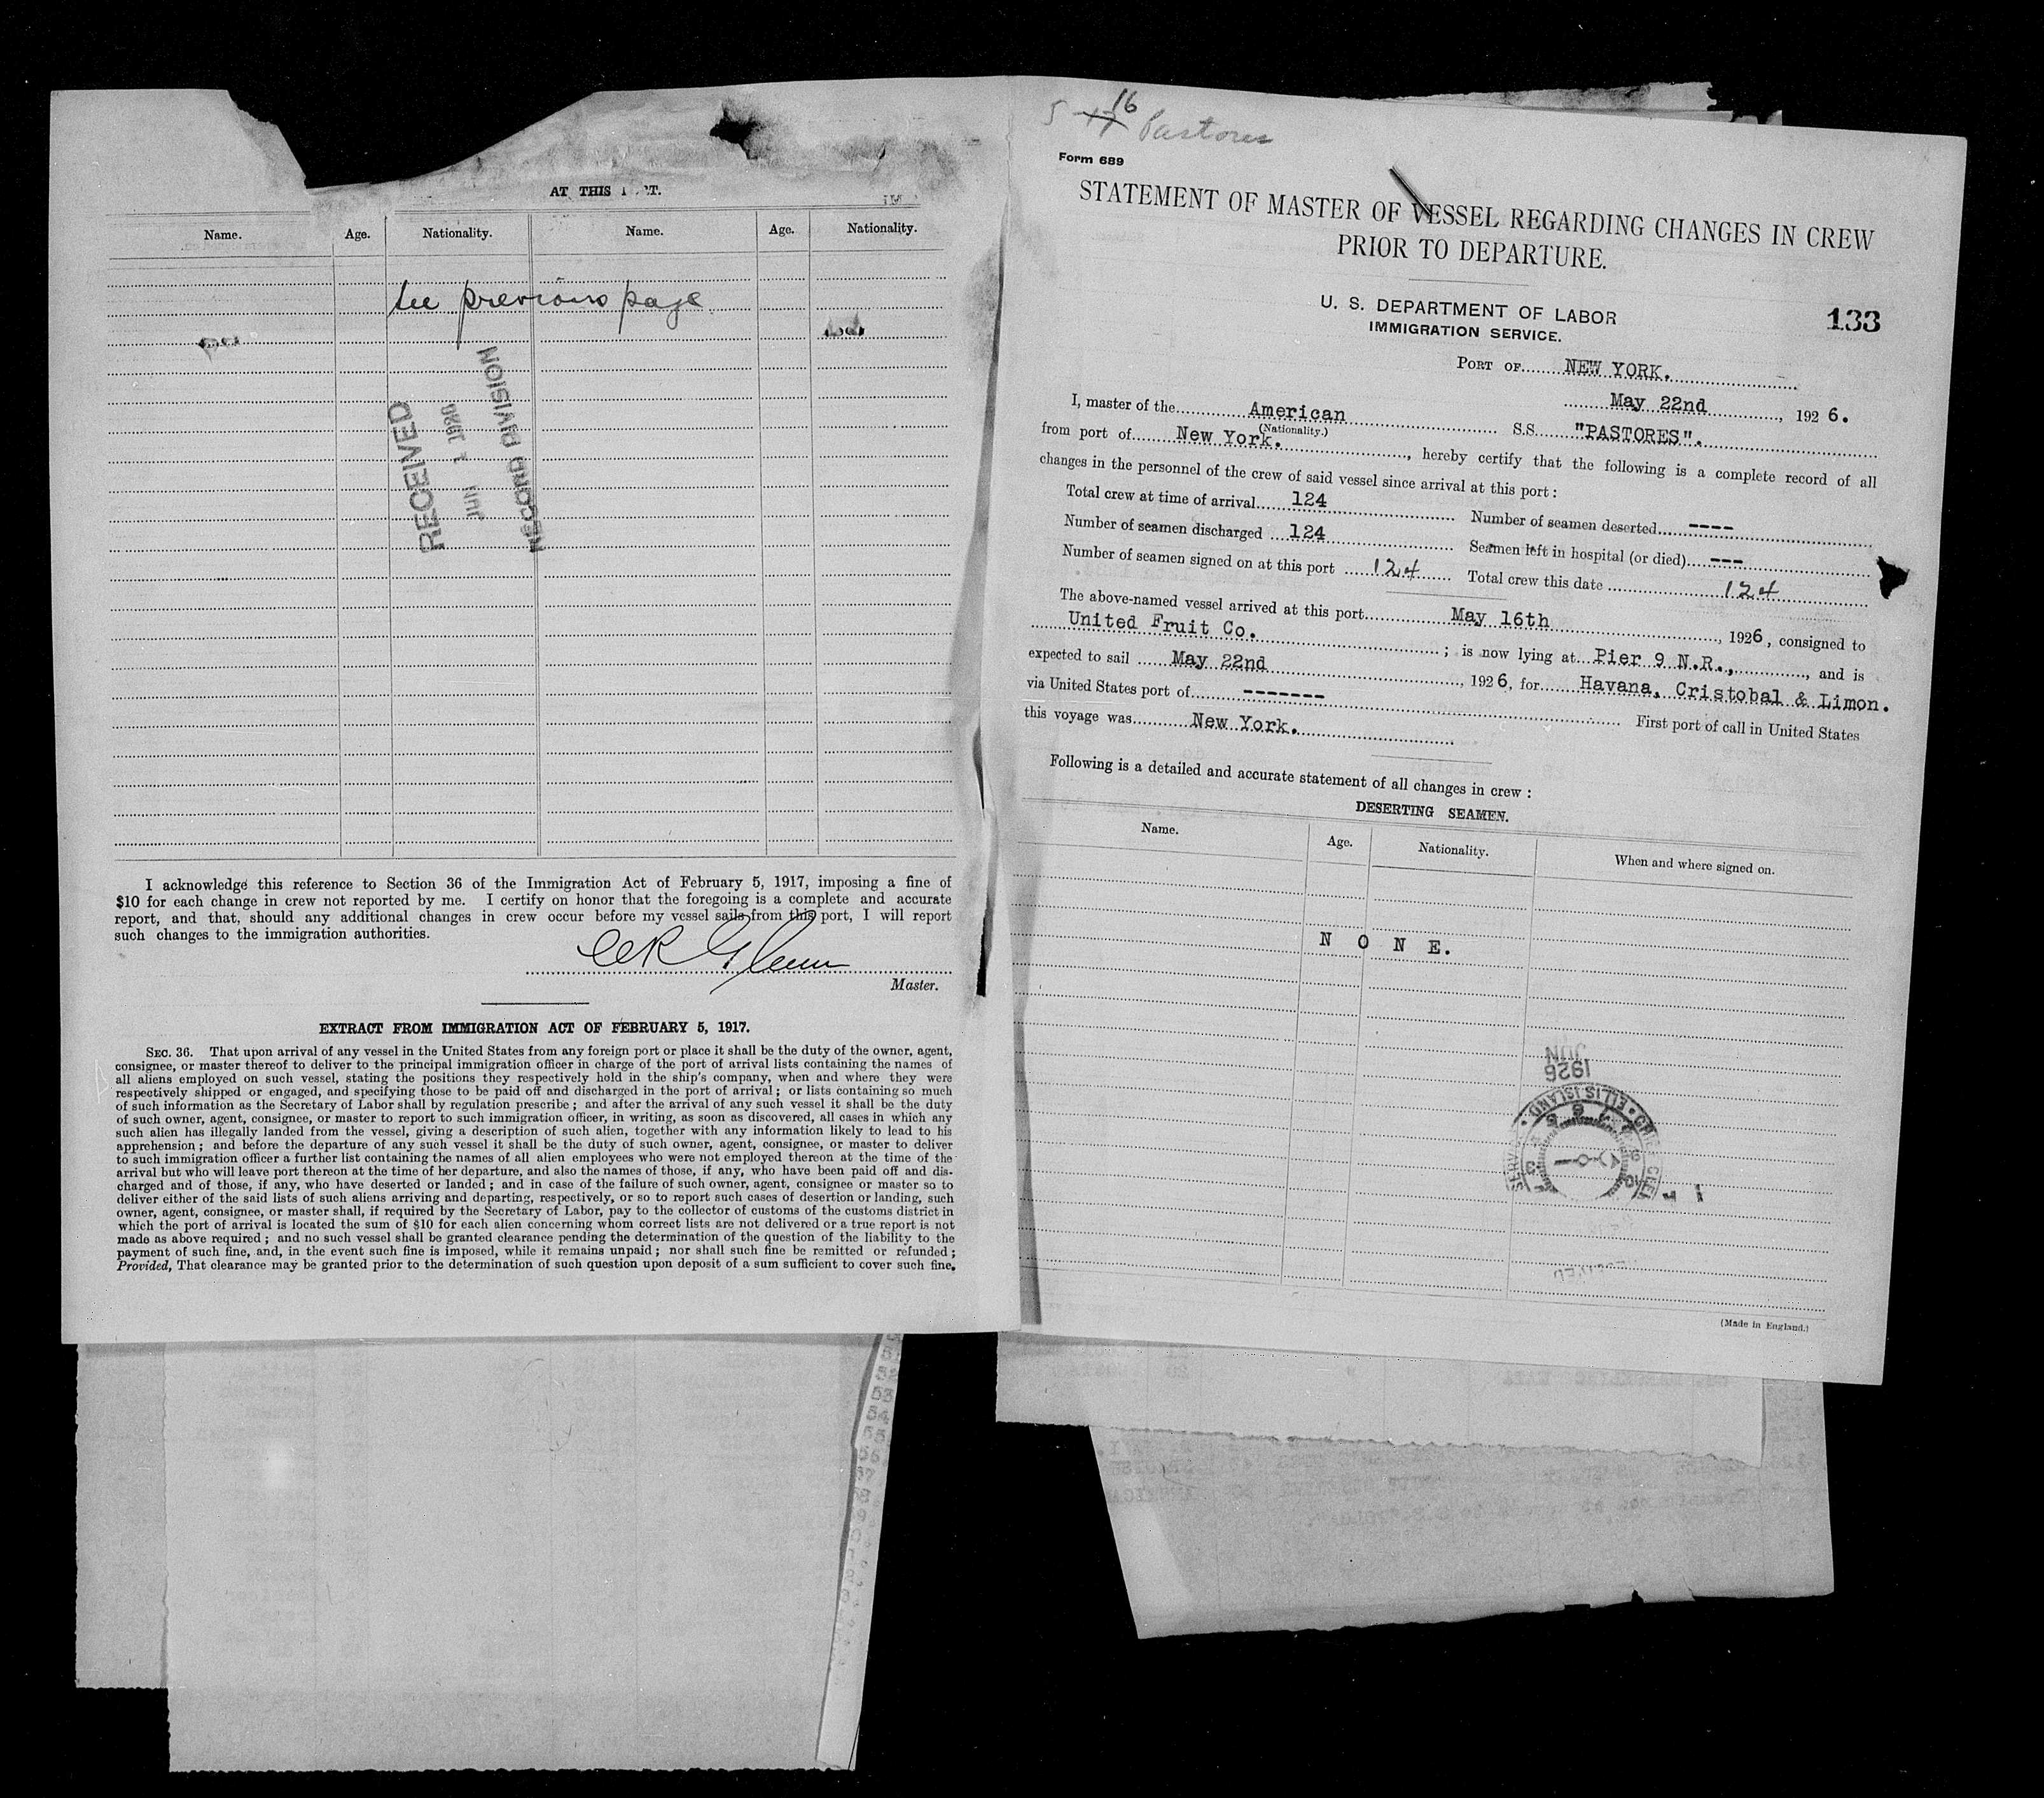 AT THIS
Name. Age. Nationality. Name. Age. Nationality.
see previous page
RECEIVED
RECORD DIVISION
I acknowledge this reference to Section 36 of the Immigration Act of February 5, 1917, imposing a fine of
$10 for each change in crew not reported by me. I certify on honor that the foregoing is a complete and accurate
report, and that, should any additional changes in crew occur before my vessel sails from this port, I will report
such changes to the immigration authorities.
Glenn
Master.
EXTRACT FROM IMMIGRATION ACT OF FEBRUARY 5, 1917.
SEC. 36. That upon arrival of any vessel in the United States from any foreign port or place it shall be the duty of the owner, agent,
consignee, or master thereof to deliver to the principal immigration officer in charge of the port of arrival lists containing the names of
all aliens employed on such vessel, stating the positions they respectively hold in the ship's company, when and where they were
respectively shipped or engaged, and specifying those to be paid off and discharged in the port of arrival; or lists containing so much
of such information as the Secretary of Labor shall by regulation prescribe; and after the arrival of any such vessel it shall be the duty
of such owner, agent, consignee, or master to report to such immigration officer, in writing, as soon as discovered, all cases in which any
such alien has illegally landed from the vessel, giving a description of such alien, together with any information likely to lead to his
apprehension; and before the departure of any such vessel it shall be the duty of such owner, agent, consignee, or master to deliver
to such immigration officer a further list containing the names of all alien employees who were not employed thereon at the time of the
arrival but who will leave port thereon at the time of her departure, and also the names of those, if any, who have been paid off and dis-
charged and of those, if any, who have deserted or landed; and in case of the failure of such owner, agent, consignee or master so to
deliver either of the said lists of such aliens arriving and departing, respectively, or so to report such cases of desertion or landing, such
owner, agent, consignee, or master shall, if required by the Secretary of Labor, pay to the collector of customs of the customs district in
which the port of arrival is located the sum of $10 for each alien concerning whom correct lists are not delivered or a true report is not
made as above required; and no such vessel shall be granted clearance pending the determination of the question of the liability to the
payment of such fine, and, in the event such fine is imposed, while it remains unpaid; nor shall such fine be remitted or refunded;
Provided, That clearance may be granted prior to the determination of such question upon deposit of a sum sufficient to cover such fine.
5 - 17 16 Pastores
Form 689
STATEMENT OF MASTER OF VESSEL REGARDING CHANGES IN CREW
PRIOR TO DEPARTURE.
U. S. DEPARTMENT OF LABOR
IMMIGRATION SERVICE.
133
PORT OF NEW YORK.
May 22nd, 1926.
I, master of the American S.S. "PASTORES".
(Nationality.)
from port of New York., hereby certify that the following is a complete record of all
changes in the personnel of the crew of said vessel since arrival at this port:
Total crew at time of arrival 124 Number of seamen deserted ----
Number of seamen discharged 124 Seamen left in hospital (or died) ---
Number of seamen signed on at this port 124 Total crew this date 124
The above-named vessel arrived at this port May 16th, 1926, consigned to
United Fruit Co.; is now lying at Pier 9 N.R.,, and is
expected to sail May 22nd, 1926, for Havana, Cristobal & Limon.
via United States port of ------- First port of call in United States
this voyage was New York.
Following is a detailed and accurate statement of all changes in crew:
DESERTING SEAMEN.
Name. Age. Nationality. When and where signed on.
N O N E.
JUN
1926
ELLIS ISLAND
(Made in England.)
52
53
54
55
56